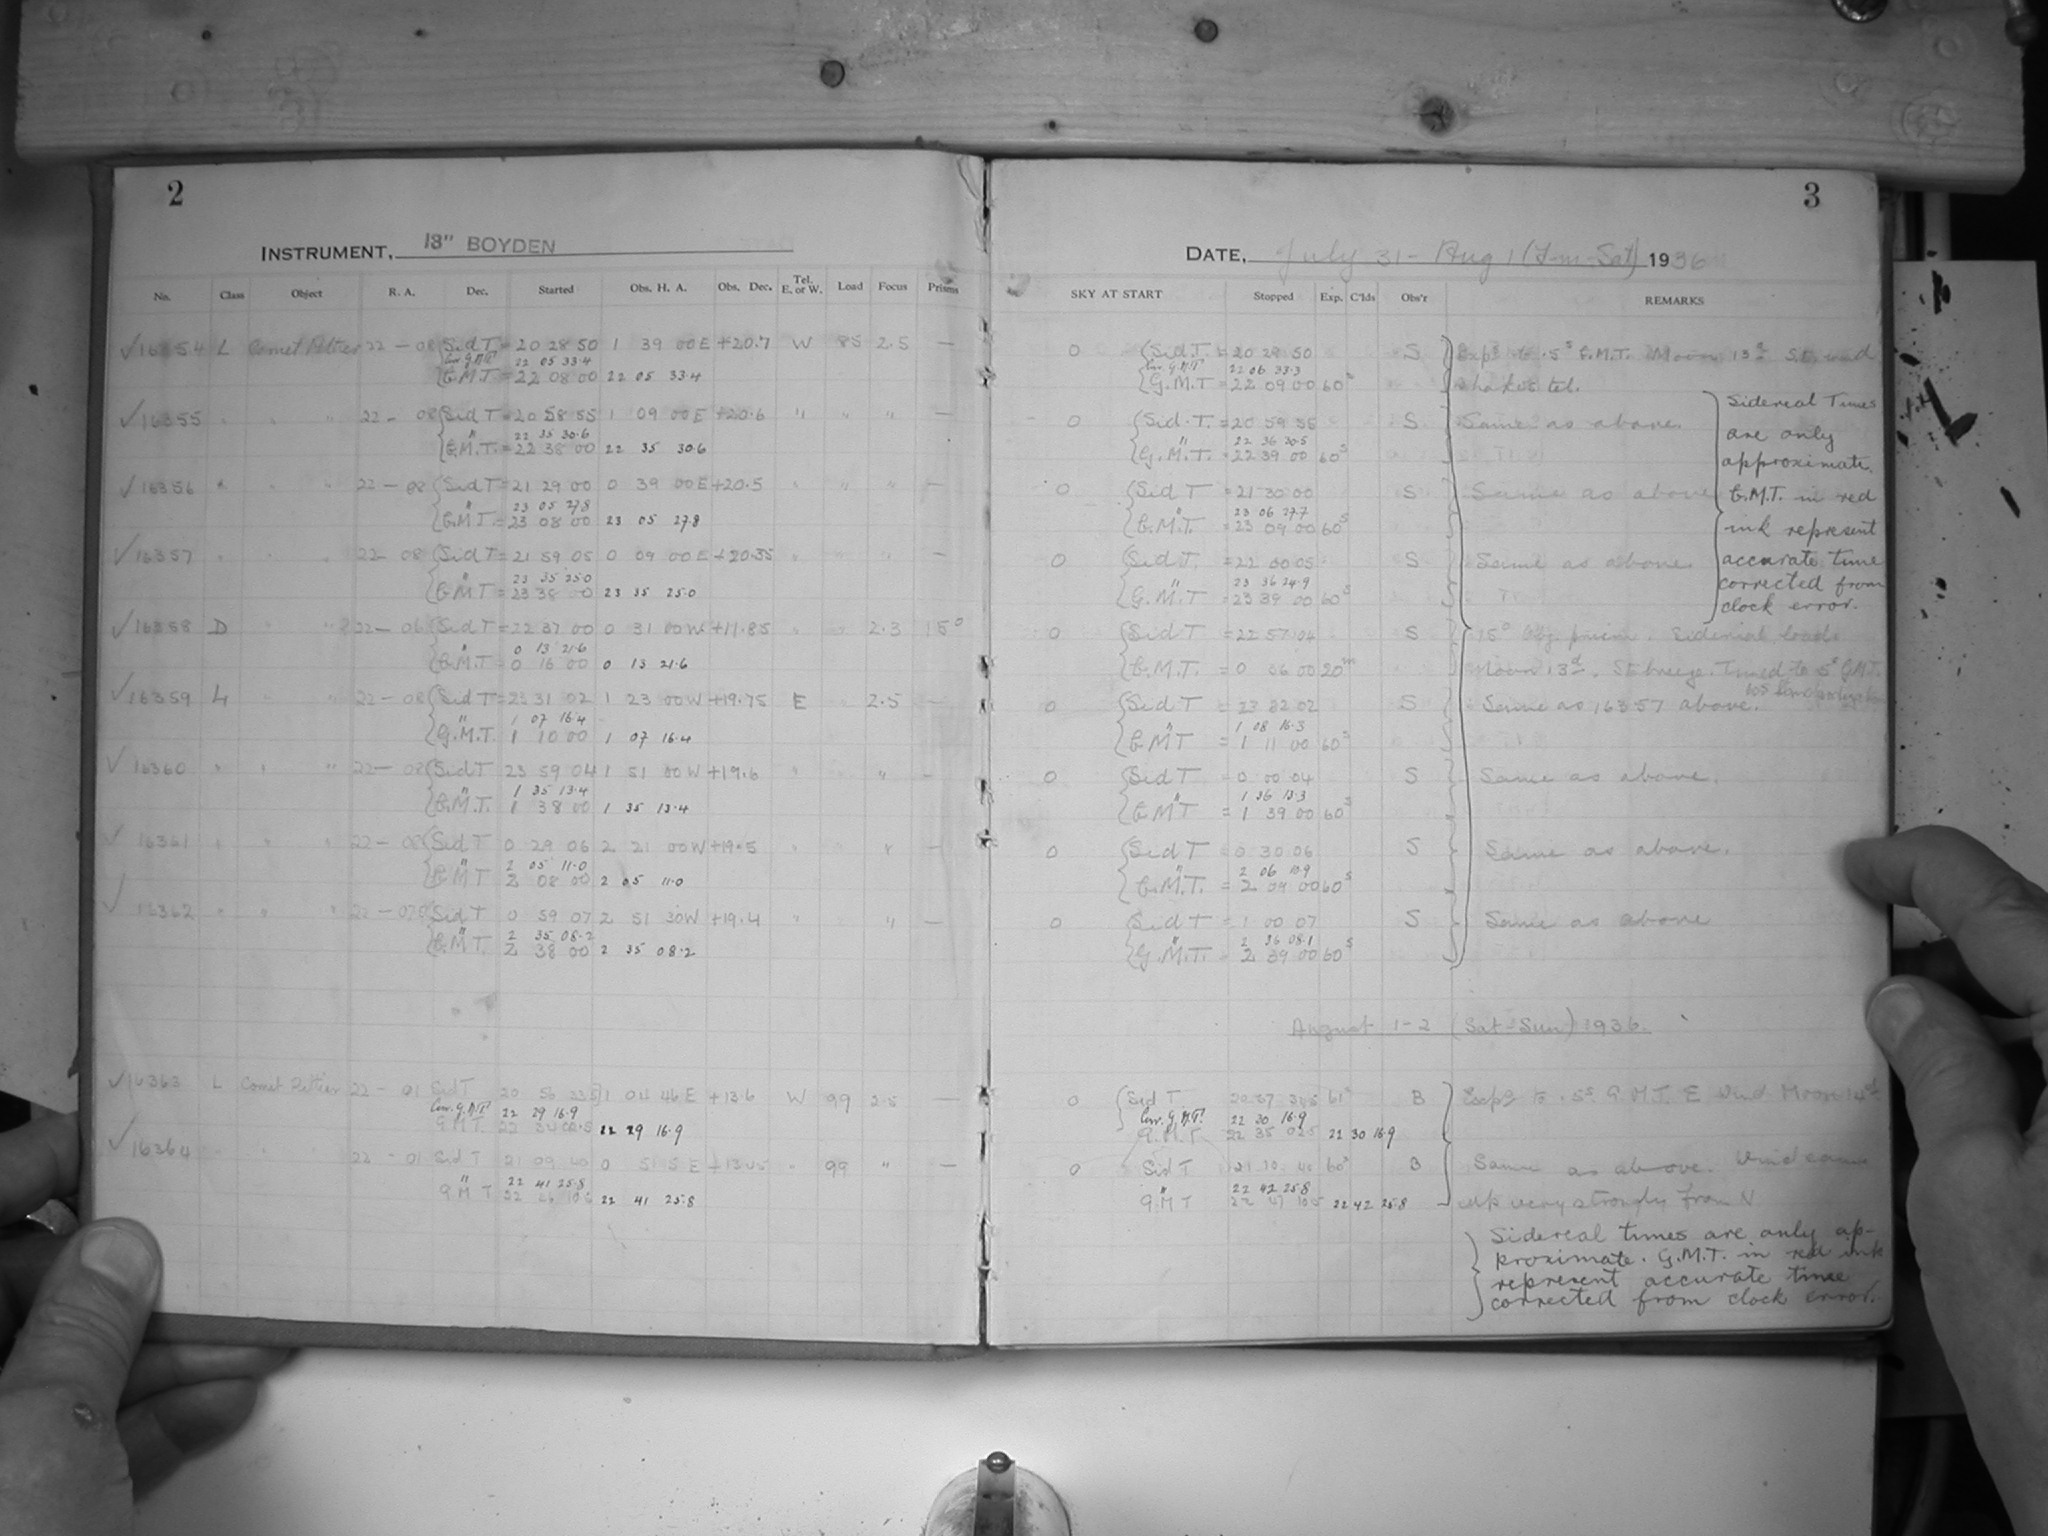 2
INSTRUMENT, 13" BOYDEN
No. Class Object R. A. Dec. Started Obs. H. A. Obs. Dec. Tel. E. or W. Load Focus Prisms
✓16354 L Comet Peltier 22 - 08 Sid T = 20 28 50 1 39 00 E +20.7 W 85 2.5 —
Corr. G.M.T. 22 05 33.4
G.M.T = 22 08 00 22 05 33.4
✓16355 " " " 22 - 08 Sid T = 20 58 55 1 09 00 E +20.6 " " " —
" 22 35 30.6
G.M.T. = 22 38 00 22 35 30.6
✓16356 " " " 22 - 08 Sid T = 21 29 00 0 39 00 E +20.5 " " " —
" 23 05 27.8
G.M.T. = 23 08 00 23 05 27.8
✓16357 " " " 22 - 08 Sid T = 21 59 05 0 09 00 E +20.35 " " " —
" 23 35 25.0
G.M.T = 23 38 00 23 35 25.0
✓16358 D " " 22 - 06 Sid T = 22 37 00 0 31 00 W +11.85 " " 2.3 15°
" 0 13 21.6
G.M.T = 0 16 00 0 13 21.6
✓16359 L " " 22 - 08 Sid T = 23 31 02 1 23 00 W +19.75 E " 2.5 —
" 1 07 16.4
G.M.T. 1 10 00 1 07 16.4
✓16360 " " " 22 - 08 Sid T 23 59 04 1 51 00 W +19.6 " " " —
" 1 35 13.4
G.M.T. 1 38 00 1 35 13.4
✓16361 " " " 22 - 08 Sid T 0 29 06 2 21 00 W +19.5 " " —
" 2 05 11.0
G M T 2 08 00 2 05 11.0
✓16362 " " " 22 - Sid T 0 59 07 2 51 30 W +19.4 " " —
" 2 35 08.2
G.M.T. 2 38 00 2 35 08.2
✓16363 L Comet Peltier 22 - 01 Sid T 20 56 1 04 46 E +13.6 W 99 2.5 —
Corr. G.M.T. 22 29 16.9
G.M.T. 22 22 29 16.9
✓16364 " " " 22 - 01 Sid T 21 09 40 0 51 5 E " 99 " —
" 22 41 25.8
G M T 22 22 41 25.8
3
DATE, July 31 - Aug 1 ( - Sat) 1936
SKY AT START Stopped Exp. C'lds Obs'r REMARKS
0 Sid T. = 20 29 50 S Exp'd to .5s G.M.T. Moon 13d St. wind
Corr. G.M.T. 22 06 33.3
G.M.T = 22 09 00 60s shakes tel.
0 Sid. T. = 20 59 55 S Same as above.
" 22 36 30.5
G.M.T. = 22 39 00 60s
0 Sid T = 21 30 00 S Same as above
" 23 06 27.7
G.M.T. = 23 09 00 60s
0 Sid T. = 22 00 05 S Same as above.
" 23 36 24.9
G.M.T = 23 39 00 60s
Sidereal Times
are only
approximate.
G.M.T. in red
ink represent
accurate time
corrected from
clock error.
0 Sid T = 22 57 04 S 15° Obj. prism. Siderial loads
G.M.T. = 0 06 00 20m Moon 13d. St. breeze. Timed to 5s G.M.T.
0 Sid T 23 32 02 S Same as 16357 above.
" 1 08 16.3
G M T = 1 11 00 60s
0 Sid T = 0 00 04 S Same as above.
" 1 36 13.3
G M T = 1 39 00 60s
0 Sid T = 0 30 06 S Same as above.
" 2 06 10.9
G.M.T. = 2 09 00 60s
0 Sid T = 1 00 07 S Same as above
" 2 36 08.1
G.M.T. = 2 39 00 60s
August 1-2 (Sat-Sun) 1936.
0 Sid T. 20 57 61s B Exp'd to .5s G.M.T. E Wind Moon 14d
Corr. G.M.T. 22 30 16.9
G.M.T 22 35 02.5 22 30 16.9
0 Sid T 21 10 40 60s B Same as above. Wind came
" 22 42 25.8
G.M T 22 47 10.5 22 42 25.8 up very strongly from N
Sidereal times are only ap-
proximate. G.M.T. in red ink
represent accurate time
corrected from clock error.